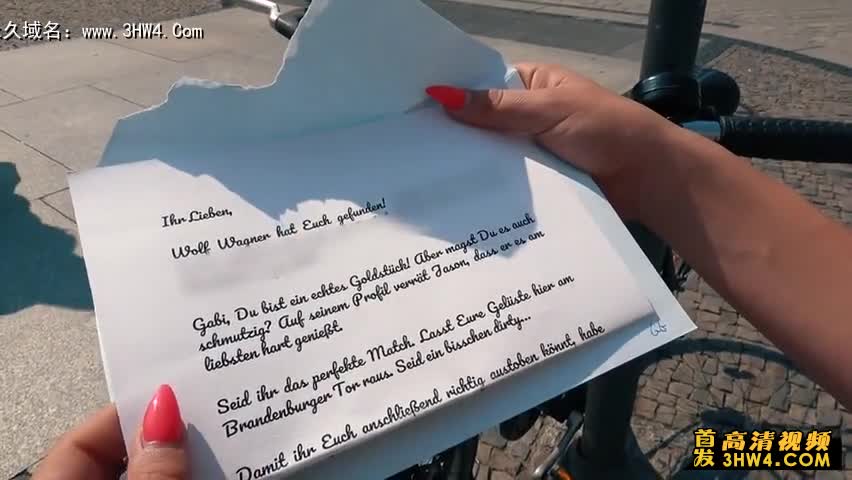 久域名：www.3HW4.Com
Ihr Lieben,
Wolf Wagner hat Euch gefunden!
Gabi, Du bist ein echtes Goldstück! Aber magst Du es auch
schmutzig? Auf seinem Profil verrät Jason, dass er es am
liebsten hart genießt.
Seid ihr das perfekte Match. Lasst Eure Gelüste hier am
Brandenburger Tor raus. Seid ein bisschen dirty...
Damit ihr Euch anschließend richtig austoben könnt, habe
首发高清视频
3HW4.COM